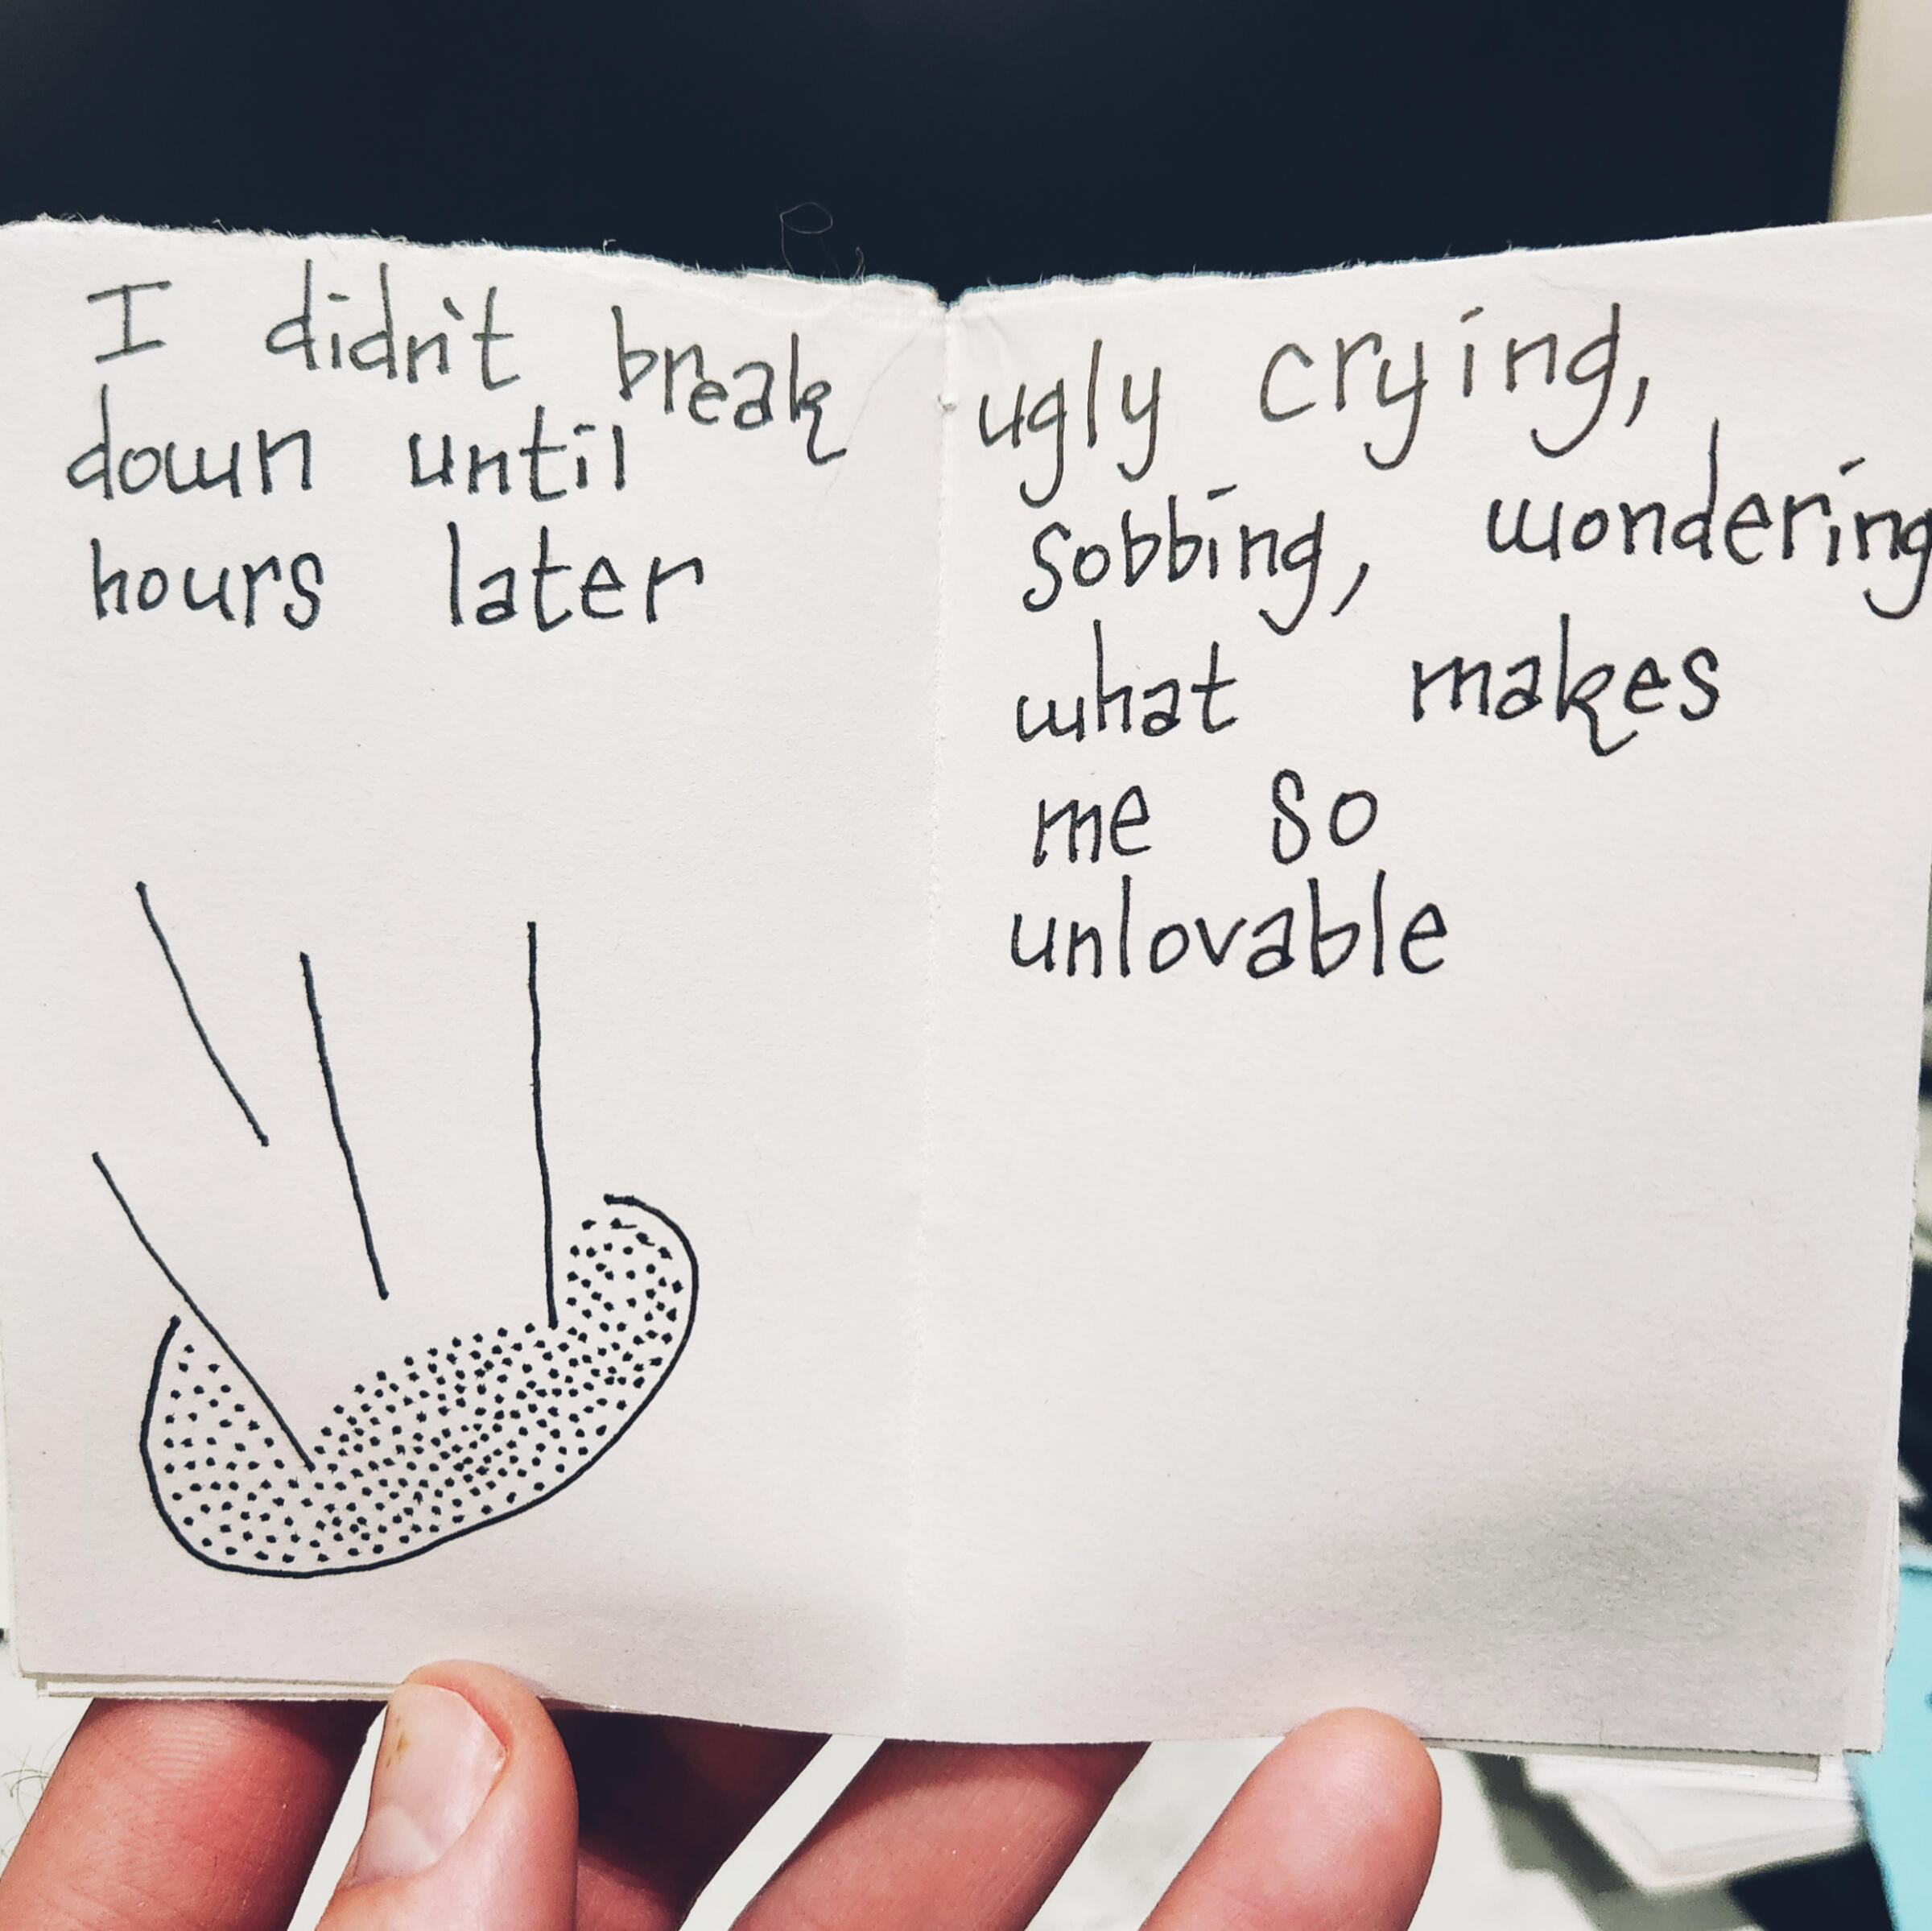 I didn't break
down until
hours later
ugly crying,
sobbing, wondering
what makes
me so
unlovable